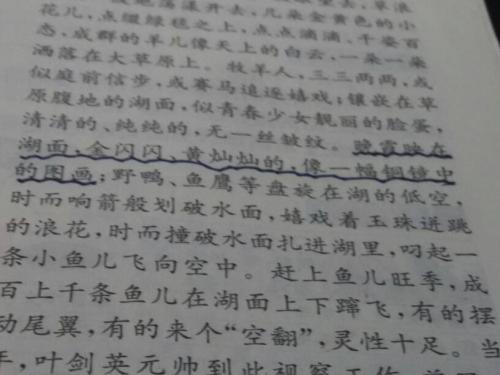 去，草浪
地荡漾开去，几朵金黄色的小
花儿，点缀绿毯之上，点点滴滴，千姿百
态，成群的羊儿像天上的白云，一朵一朵
洒落在大草原上。牧羊人，三三两两，或
似庭前信步，或赛马追逐嬉戏；镶嵌在草
原腹地的湖面，似青春少女靓丽的脸蛋，
清清的、纯纯的，无一丝皱纹。晚霞映在
湖面，金闪闪、黄灿灿的，像一幅铜镜中
的图画；野鸭、鱼鹰等盘旋在湖的低空，
时而响箭般划破水面，嬉戏着玉珠迸跳
的浪花，时而撞破水面扎进湖里，叼起一
条小鱼儿飞向空中。赶上鱼儿旺季，成
百上千条鱼儿在湖面上下蹿飞，有的摆
动尾翼，有的来个“空翻”，灵性十足。当
年，叶剑英元帅到此视察工作，